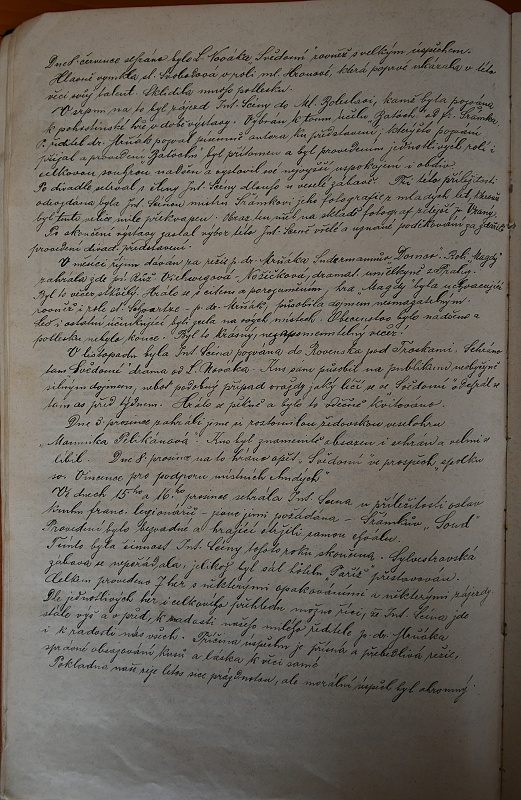 Dne 8. července sehráno bylo L. Nováka „Svědomí" rovněž s velkým úspěchem.
Hlavně vynikla sl. v roli ml. Hronové, která poprvé ukázala v této
věci svůj talent. Sklidila mnoho potlesku.
V srpnu na to byl zájezd Int. Scény do Ml. Boleslavi, kamž byla pozvána
k pohostinské hře v době výstavy. Vybrán k tomu účelu „Zátoň" od Fr. Šrámka.
P. ředitel dr. Mrňák pozval písemně autora ku představení, kterýžto pozvání
přijal a provedení byl přítomen a byl provedením jednotlivých rolí i
celkovou souhrou nadšen a vyslovil své nejvyšší uspokojení i obdiv.
Po divadle setrval s členy Int. Scény dlouho v veselé zábavě. Při této příležitosti
odevzdána byla Int. Scénou mistru Šrámkovi jeho fotografie z mladých let, kterouž
byl tento velice mile překvapen. Obraz ten měl na skladě fotograf zdejší p. Vraný.
Po skončení výstavy zaslal výbor této Int. Scéně vřelé a uznané poděkování za
provedení divad. představení.
V měsíci říjnu dáván za režie p. dr. Mrňáka Sudermannův „Domov". Roli „Magdy"
zahrála zde pí Růž. Nosková, dramat. umělkyně z Prahy.
Byl to večer skvělý. Hrálo se s citem a porozuměním, hra „Magdy" byla uchvacující
rovněž i role pl. Schwartze – p. dr. Mrňák, působila dojmem nesmazatelným.
též i ostatní účinkující byli zcela na svých místech. Obecenstvo bylo nadšeno a
potlesku nebylo konce. Byl to krásný, nezapomenutelný večer.
V listopadu byla Int. Scéna pozvána do Rovenska pod Troskami. Sehráno
tam „Svědomí" drama od L. Nováka. Kus sám působil na publikum neobyčejně
silným dojmem, neboť podobný případ vraždy jaký líčí se ve „Svědomí" odehrál se
tam as před týdnem. Hrálo se pilně a bylo to vděčně kvitováno.
Dne 3. prosince zahráli jsme si roztomilou židovskou veselohru
„Maminka Pelikánová". Kus byl znamenitě obsazen i sehrán a velmi se
líbil. Dne 8. prosince na to hráno opět „Svědomí" ve prospěch „spolku
sv. Vincence pro podporu místních chudých".
Ve dnech 15ho a 16ho prosince sehrála Int. Scéna u příležitosti oslav
franc. legionářů – jsouc jimi požádána – Šrámkův „Soud".
Provedení bylo bezvadné a hrající sklidili samou chválu.
Tímto byla činnost Int. Scény tohoto roku skončena. Sylvestrovská
zábava se nepořádala, jelikož byl sál hotelu „Paříž" přestavován.
Celkem provedeno 7 her s některými opakováními a některými zájezdy.
Dle jednotlivých her i celkového přehledu možno říci, že Int. Scéna jde
stále výš a vpřed, k radosti našeho milého ředitele p. dr. Mrňáka
i k radosti nás všech. Příčina úspěchu je pilná a přebedlivá režie,
správné obsazování kusů a láska k věci samé.
Pokladna naše zeje letos sice prázdnotou, ale morální úspěch byl ohromný.